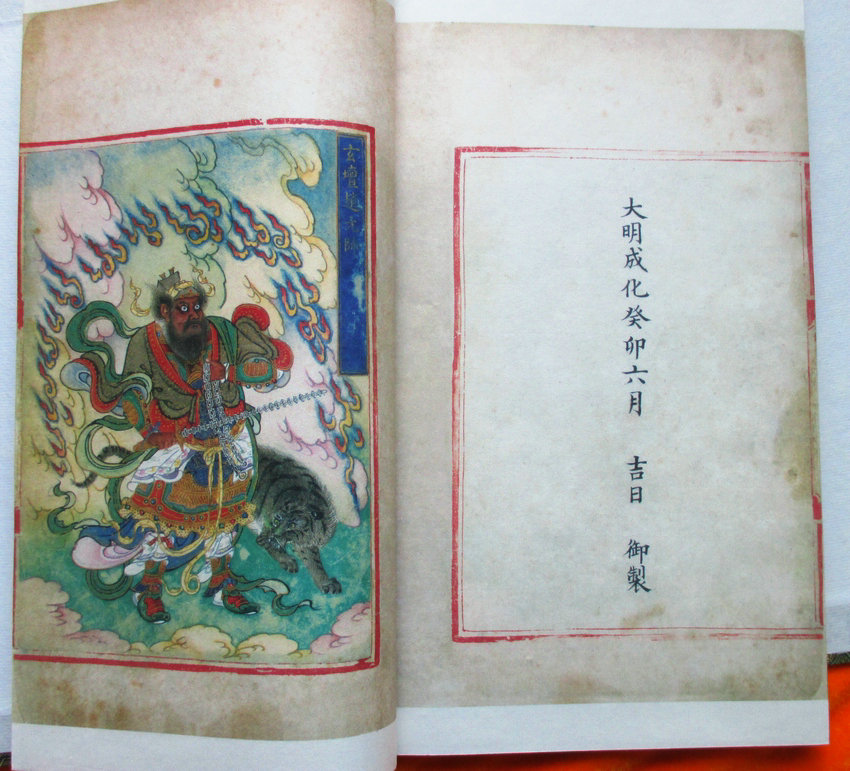 大明成化癸卯六月 吉日 御製
玄壇趙元帥